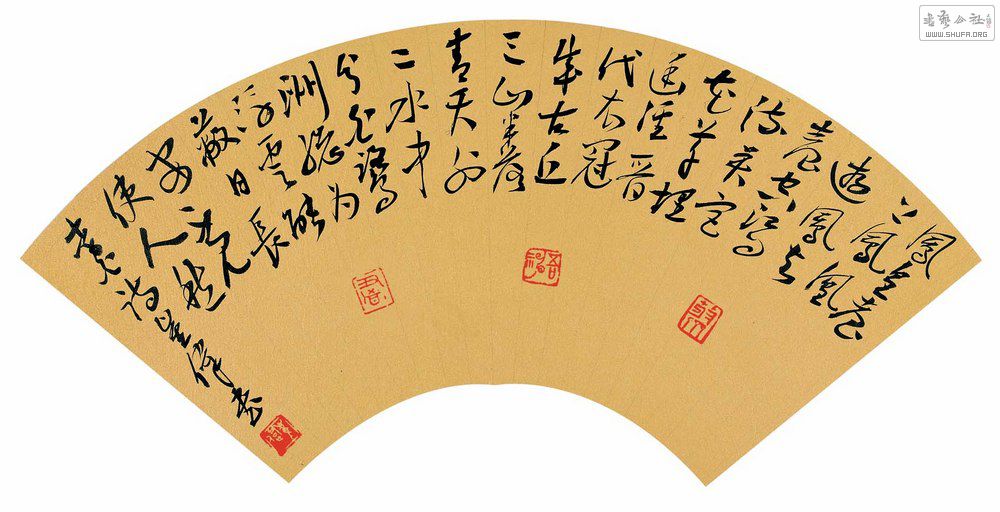 鳳皇臺
上鳳凰
遊鳳去
臺空江自
流吳宮
花草埋
幽徑晉
代衣冠
成古丘
三山半落
青天外
二水中
分白鷺
洲總為
浮雲能
蔽日長
安不見
使人愁
李白詩 書
WWW.SHUFA.ORG